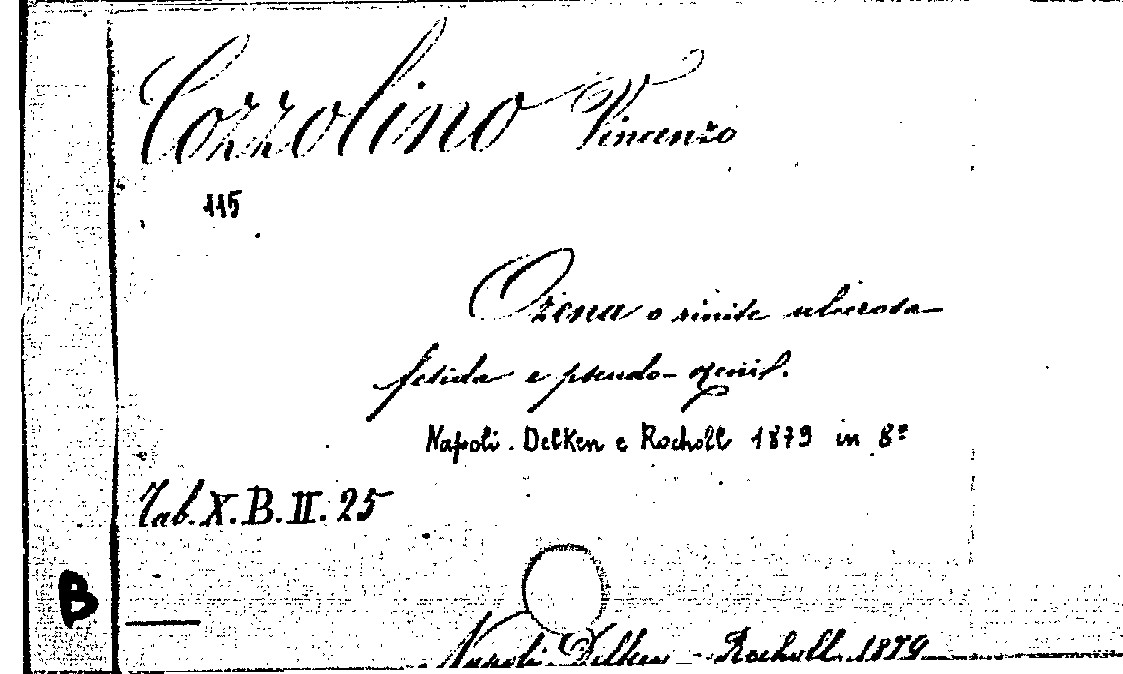 Cozzolino Vincenzo
115
Ozena o rinite ulcerosa
fetida e pseudo-
Napoli. Delken e Rocholl 1879 in 8º
Tab. X. B. II. 25
B
Napoli. Delken - Rocholl. 1879